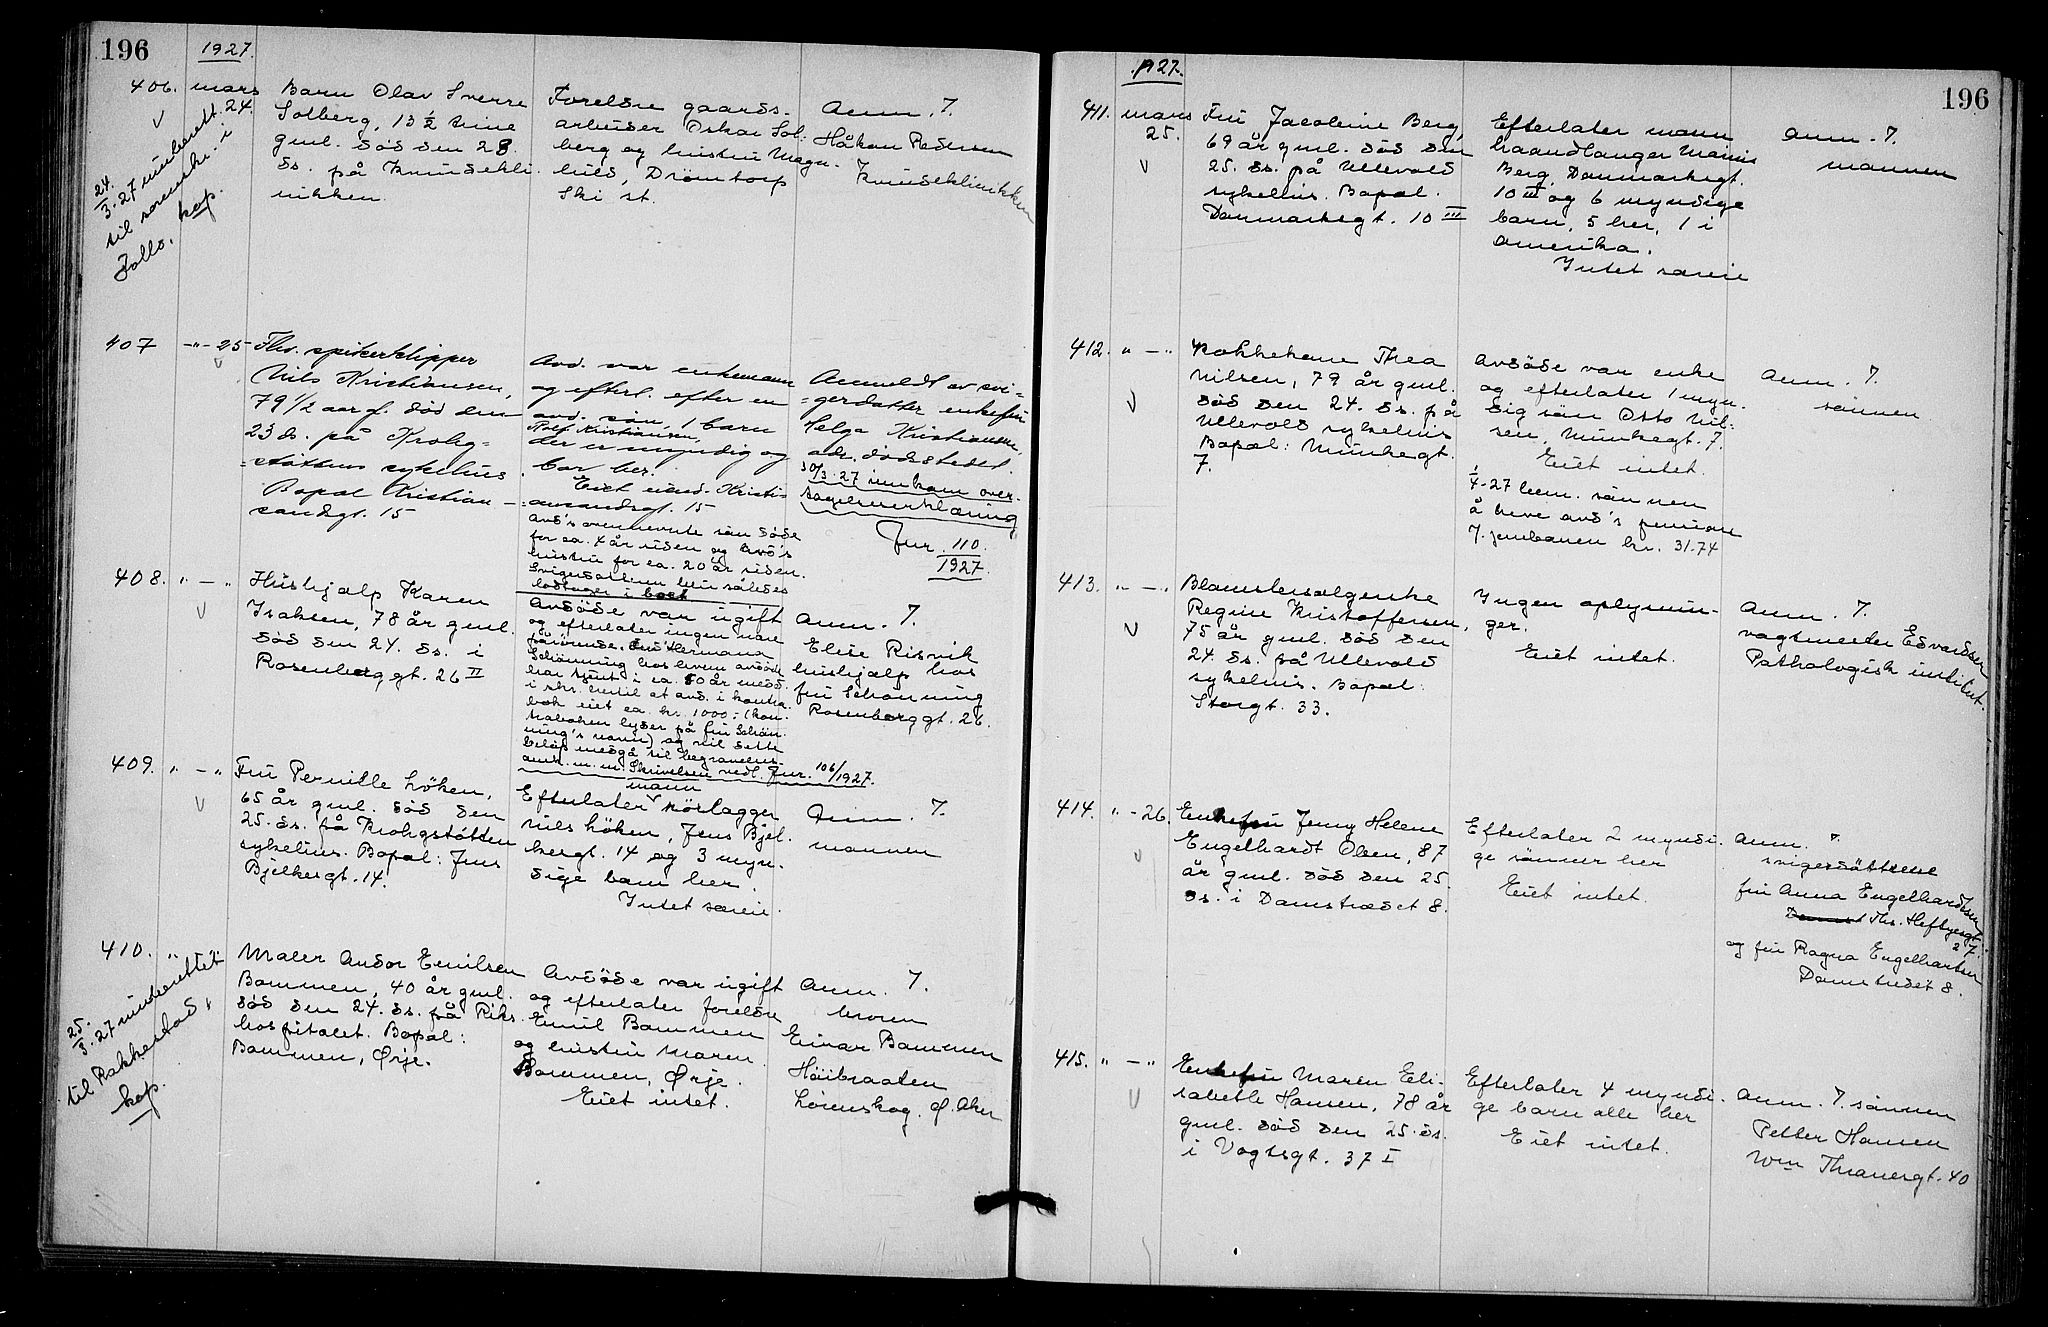 196
1927.
406. mars
24.
Barn Olav Sverre
Solberg, 13 ½ time
gml. död den 23
ds. på kvindekli-
nikken.
Foreldre gaards-
arbeider Oskar Sol-
berg og hustru Magn-
hild, Drömtorp
Ski st.
Anm. T.
Håkon Pedersen
Kvindeklinikken
24/3-27 underrett.
til sorenskr. i
Follo, kop.
407 -"- 25
Fhv. spikerklipper
Nils Kristiansen,
79 1/2 aar g. död den
23 ds. på Krohg-
støttens sykehus
Bopæl Kristian-
sandsgt. 15
Avd. var enkemann
og efterl. efter en
avd. sön, 1 barn
Rolf Kristiansen,
der er myndig og
bor her.
Eiet eiend. Kristi-
ansandsgt. 15
Avd's ovennevnte sön döde
for ca. 4 år siden og avd's
hustru for ca. 20 år siden.
Svigerdatteren blir således
lodtager i boet
Anmeldt av svi-
gerdatter enkefru
Helga Kristiansen,
adr. dödsstedet.
30/3-27 innkom over-
tagelseserklæring
Jur. 110.
1927.
408. " - "
Hushjelp Karen
Isaksen, 78 år gml.
död den 24. ds. i
Rosenborggt. 26 II
Avdöde var ugift
og efterlater ingen nære
pårörende. Fru Hermana
Schönning hos hvem avdöde
har tjent i ca. 50 år medd.
i skr. hertil at avd. i kontra-
bok eiet ca. kr. 1000,- (kon-
traboken lyder på fru Schön-
ning's navn) og vil dette
belöp medgå til begravelse
omk. m. m. Skrivelsen vedl. Jur. 106/1927.
Anm. T.
Elise Risvik
hushjelp hos
fru Schönning
Rosenborggt. 26.
409. " - "
Fru Pernille Löken,
65 år gml. död den
25. ds. på Krohgstötten
sykehus. Bopæl: Jens
Bjelkesgt. 14.
mann
Efterlater rörlegger
Nils Löken, Jens Bjel-
kesgt. 14 og 3 myn-
dige barn her.
Intet særeie.
Anm. T.
mannen
410. "
Maler Andor Emilsen
Bommen, 40 år gml.
död den 24. ds. på Riks-
hospitalet. Bopæl:
Bommen, Ørje.
Avdöde var ugift
og efterlater foreldre
Emil Bommen
og hustru Maren
Bommen, Ørje.
Eiet intet.
Anm. T.
broren
Einar Bommen
Höibraaten
Lörenskog. Ø. Aker
25/3-27 underrettet
til Rakkestad,
kop.
196
1927.
411. mars
25.
Fru Jacobine Berg,
69 år gml. död den
25. ds. på Ullevold
sykehus. Bopæl.
Danmarksgt. 10 III
Efterlater mann
haandlanger
Berg, Danmarksgt.
10 III og 6 myndige
barn, 5 her, 1 i
Amerika.
Intet særeie
Anm. T.
mannen
412. " - "
Kokkekone Thea
Nilsen, 79 år gml.
död den 24. ds. på
Ullevold sykehus
Bopæl: Munkegt.
7.
Avdöde var enke
og efterlater 1 myn-
dig sön Otto Nil-
sen, Munkegt. 7.
Eiet intet.
1/4-27 bem. sönnen
å heve avd's pension
f. jernbanen kr. 31.74
Anm. T.
sönnen
413. " - "
Blomsterselgerske
Regine Kristoffersen,
75 år gml. död den
24. ds. på Ullevold
sykehus. Bopæl:
Storgt. 33.
Ingen oplysnin-
ger.
Eiet intet.
Anm. T.
vagtmester Edvardsen
Pathologisk institut.
414. " - 26.
Enkefru Jenny Helene
Engelhardt Olsen, 87
år gml. död den 25.
ds. i Damstrædet 8.
Efterlater 2 myndi-
ge sönner her
Eiet intet.
Anm. T.
svigerdöttrene
fru Anna Engelhardtsen
Ths. Heftyesgt.
27.
og fru Ragna Engelhartsen
Damstredet 8.
415. " - "
Enkefru Maren Eli-
sabeth Hansen, 78 år
gml. död den 25. ds.
i Vogtsgt. 37 I
Efterlater 4 myndi-
ge barn alle her
Eiet intet.
Anm. T. sönnen
Petter Hansen
Wm Thranesgt. 40